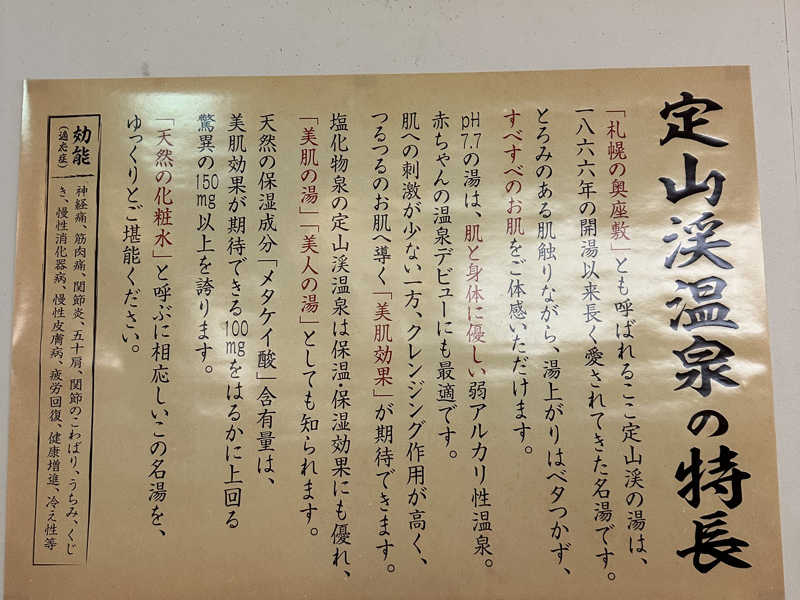 定山渓温泉の特長
「札幌の奥座敷」とも呼ばれるここ定山渓の湯は、
一八六六年の開湯以来長く愛されてきた名湯です。
とろみのある肌触りながら、湯上がりはベタつかず、
すべすべのお肌をご体感いただけます。
pH7.7の湯は、肌と身体に優しい弱アルカリ性温泉。
赤ちゃんの温泉デビューにも最適です。
肌への刺激が少ない一方、クレンジング作用が高く、
つるつるのお肌へ導く「美肌効果」が期待できます。
塩化物泉の定山渓温泉は保温・保湿効果にも優れ、
「美肌の湯」「美人の湯」としても知られます。
天然の保湿成分「メタケイ酸」含有量は、
美肌効果が期待できる100mgをはるかに上回る
驚異の150mg以上を誇ります。
「天然の化粧水」と呼ぶに相応しいこの名湯を、
ゆっくりとご堪能ください。
効能
(適応症)
神経痛、筋肉痛、関節炎、五十肩、関節のこわばり、うちみ、くじ
き、慢性消化器病、慢性皮膚病、疲労回復、健康増進、冷え性等